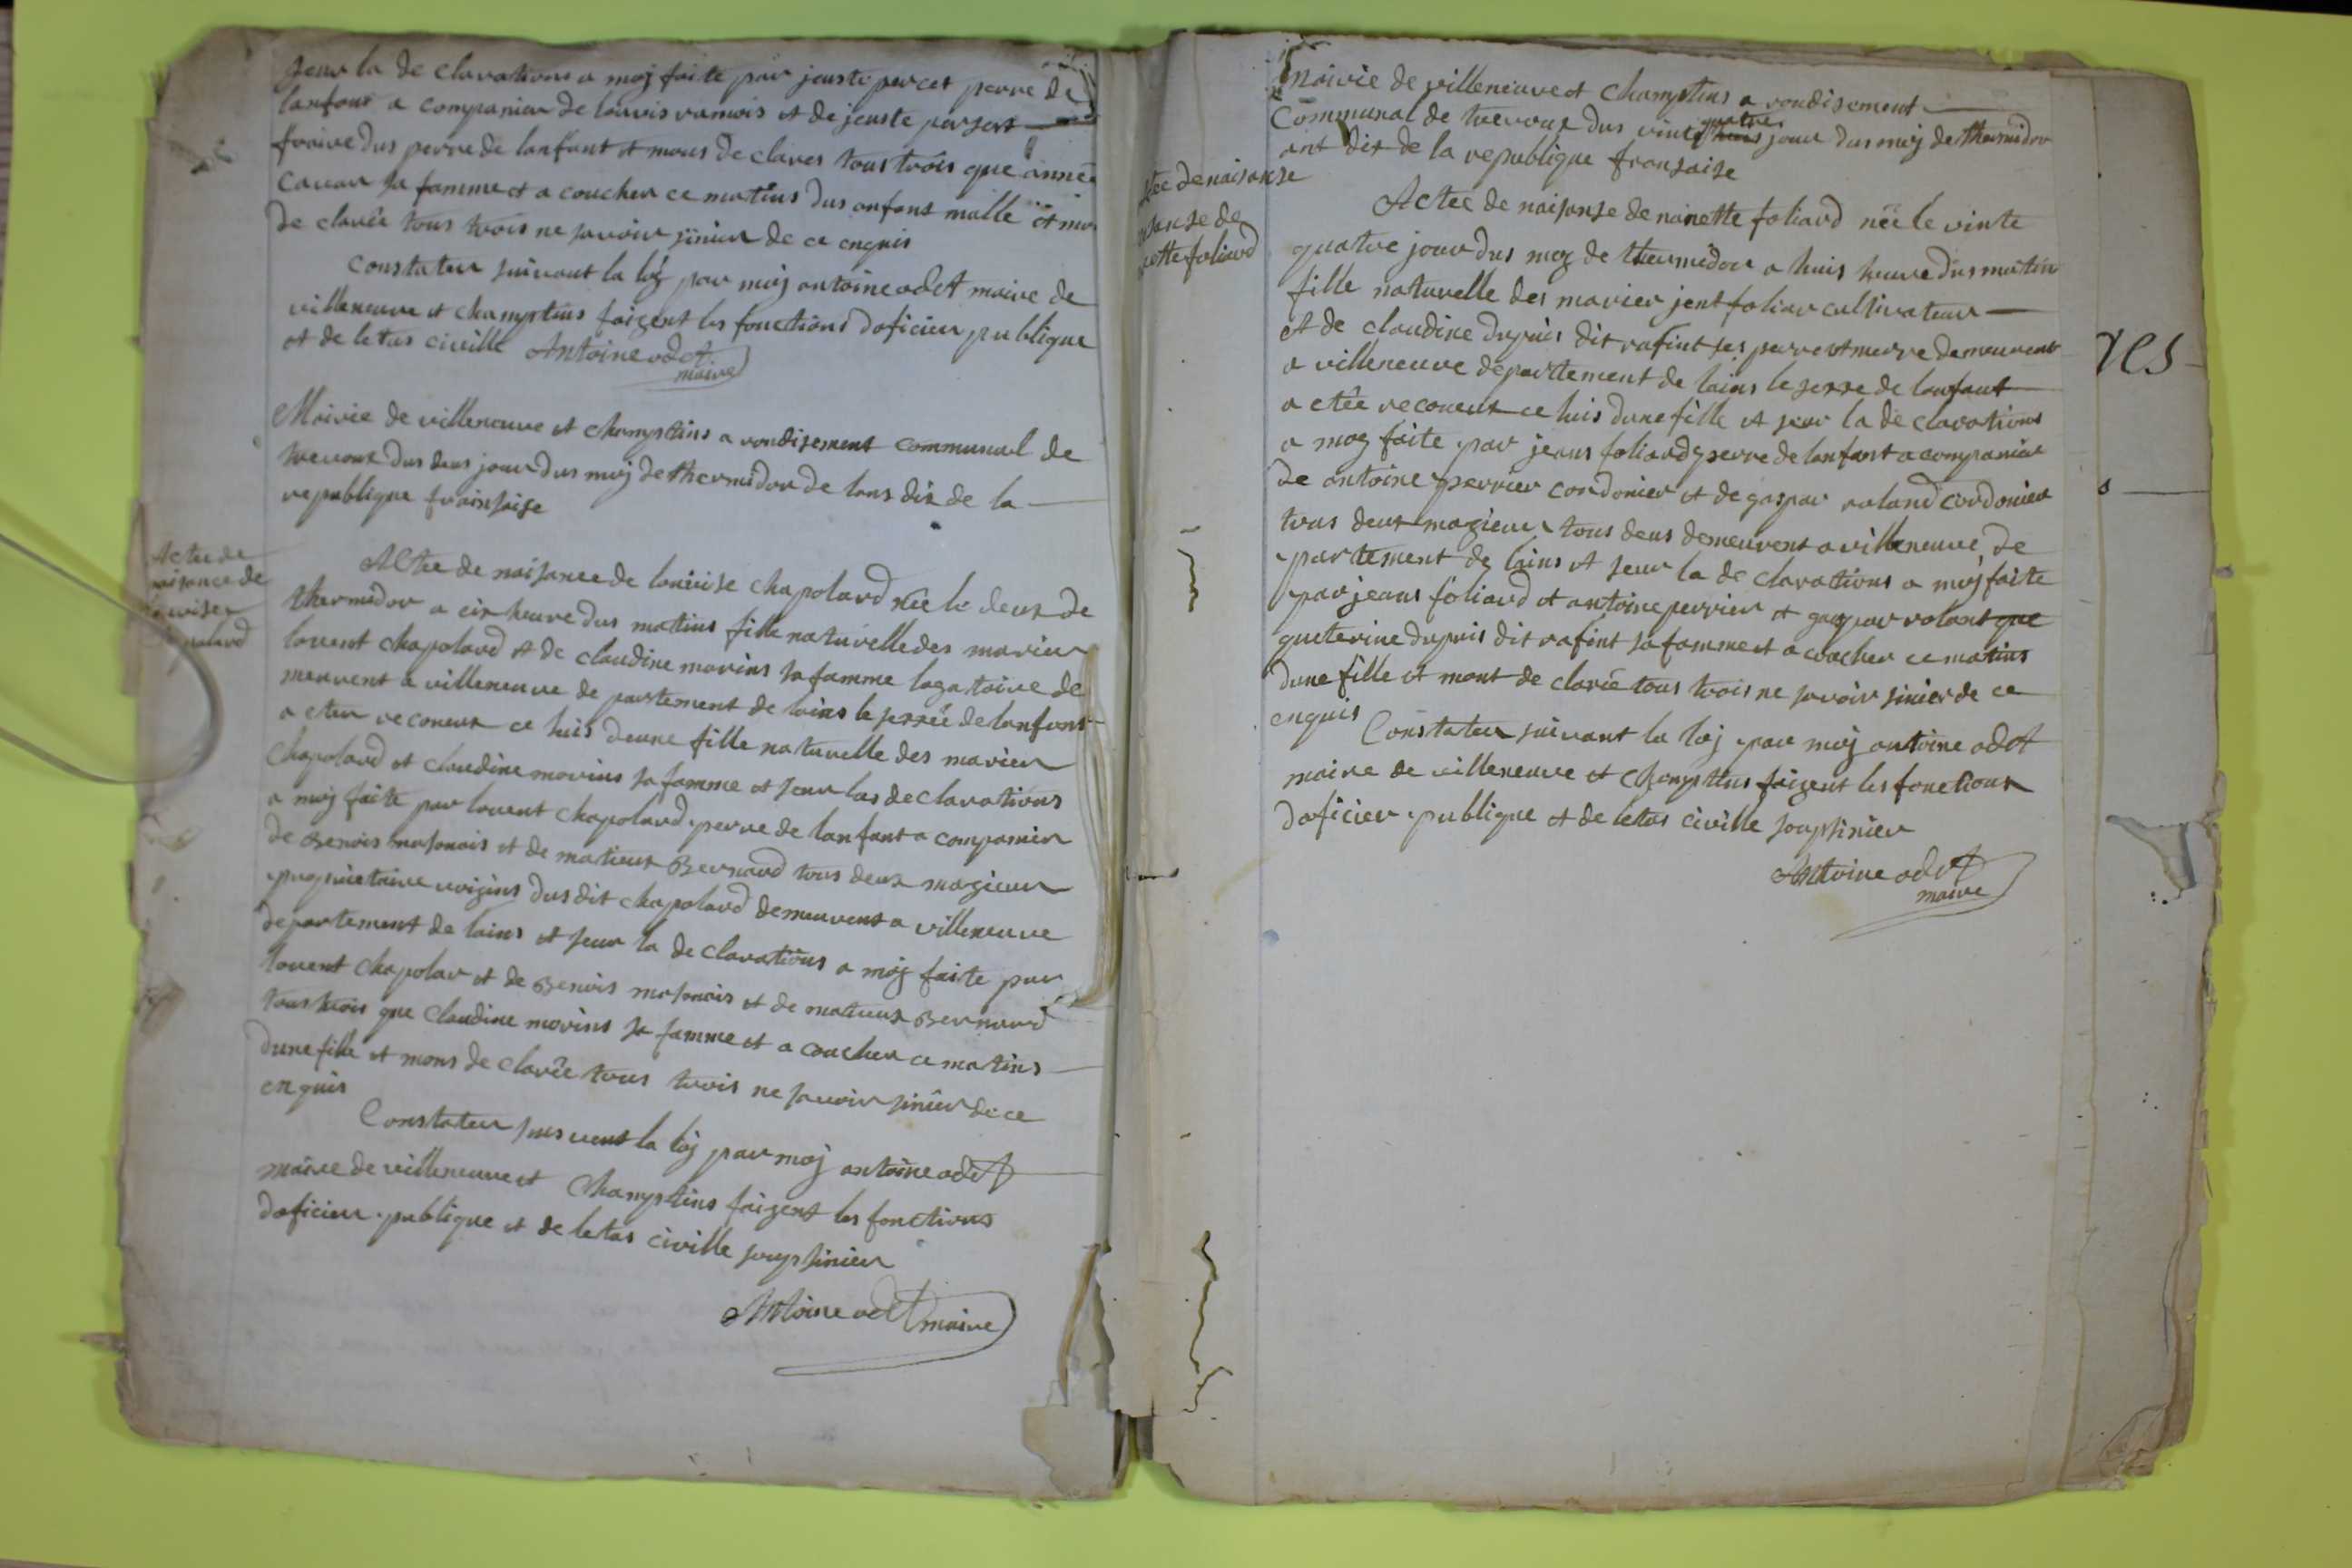 seur la de clarations a moj faite par jeuste percet perre de
lanfant a companier de louvis ramois et de jeuste perset
fraire dus perre de lanfant et mous de clarer tous trois que anneë
sa famme et a coucher ce matins dus anfant malle et
de clarée tous trois ne savoir sinier de ce enquis
constater suivant la loÿ par moj antoine odet maire de
villeneuve et champtins faizent les fonctions doficier publique
et de letas civille Antoine odet
maire
Mairie de villeneuve et champtins a rondisement communal de
trevoux dus deus jour dus moj de thermidor de lans dix de la
republique frainsaise
Actee de
naisance de
louvise
chapolard
Actee de naisance de louvise chapolard née le deux de
thermidor a cix heure dus matins fille naturelle des marier
lorent chapolard et de claudine morins sa famme laga taire de
meurent a villeneuve de partement de lains le sexxe de lanfant
a eter reconeux ce luis deune fille naturelle des marier
chapolard et claudine morins sa famme et seur las de clarations
a moj faite par lorent chapolard perre de lanfant a companier
de Benois masonois et de matieux Bernard tous deux magieur
propriietaire voizins dus dit chapolard demeurent a villeneuve
departement de lains et seur la de clarations a moj faite par
lorent chapolar et de Benois masonois et de matieux Bernard
tous trois que claudine morins sa famme et a coucher ce matins
dune fille et mons de clarée tous trois ne savoir sinier de ce
enquis
Constater suis vent la loj par moj antoine odet
maire de villeneuve et Champtins faizent les fonctions
doficier publique et de letas civille soupsinier
Antoine odet maire
Mairie de villeneuve et Champtins a rondisement
Communal de trevoux dus vint quatre jour dus moj de thermidor
ant dix de la republique fransaise
Actee de naisanse
naisanse de
nanette foliard
Actee de naisanse de nanette foliard née le vinte
quatre jour dus moj de thermidor a huis heure dus matin
fille naturelle des marier jent foliar cultivateur
et de claudine dupuis dit rafint ses perre et merre demeurent
a villeneuve departement de lains le sexxe de lanfant
a etée reconeux ce luis dune fille et seur la de clarations
a moj faite par jeans foliard perre de lanfant a companier
de antoine perrier cordonier et de gaspar roland cordonier
tous deux magieur tous deus demeurent a villeneuve de
partement de lains et seur la de clarations a moj faite
par jeans foliard et antoine perrier et gaspar rolant que
queterine dupuis dit rafint sa famme et a coucher ce matins
dune fille et mont de clarée tous trois ne savoir sinier de ce
enquis
Constater suivant la loj par moj antoine odet
maire de villeneuve et Champtins faizent les fonctions
doficier publique et de letas civille soupsinier
Antoine odet
maire
res